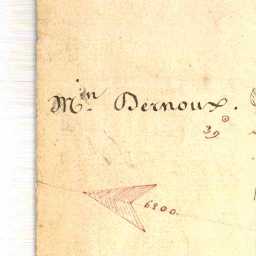 Min Dernoux.
39
6200.